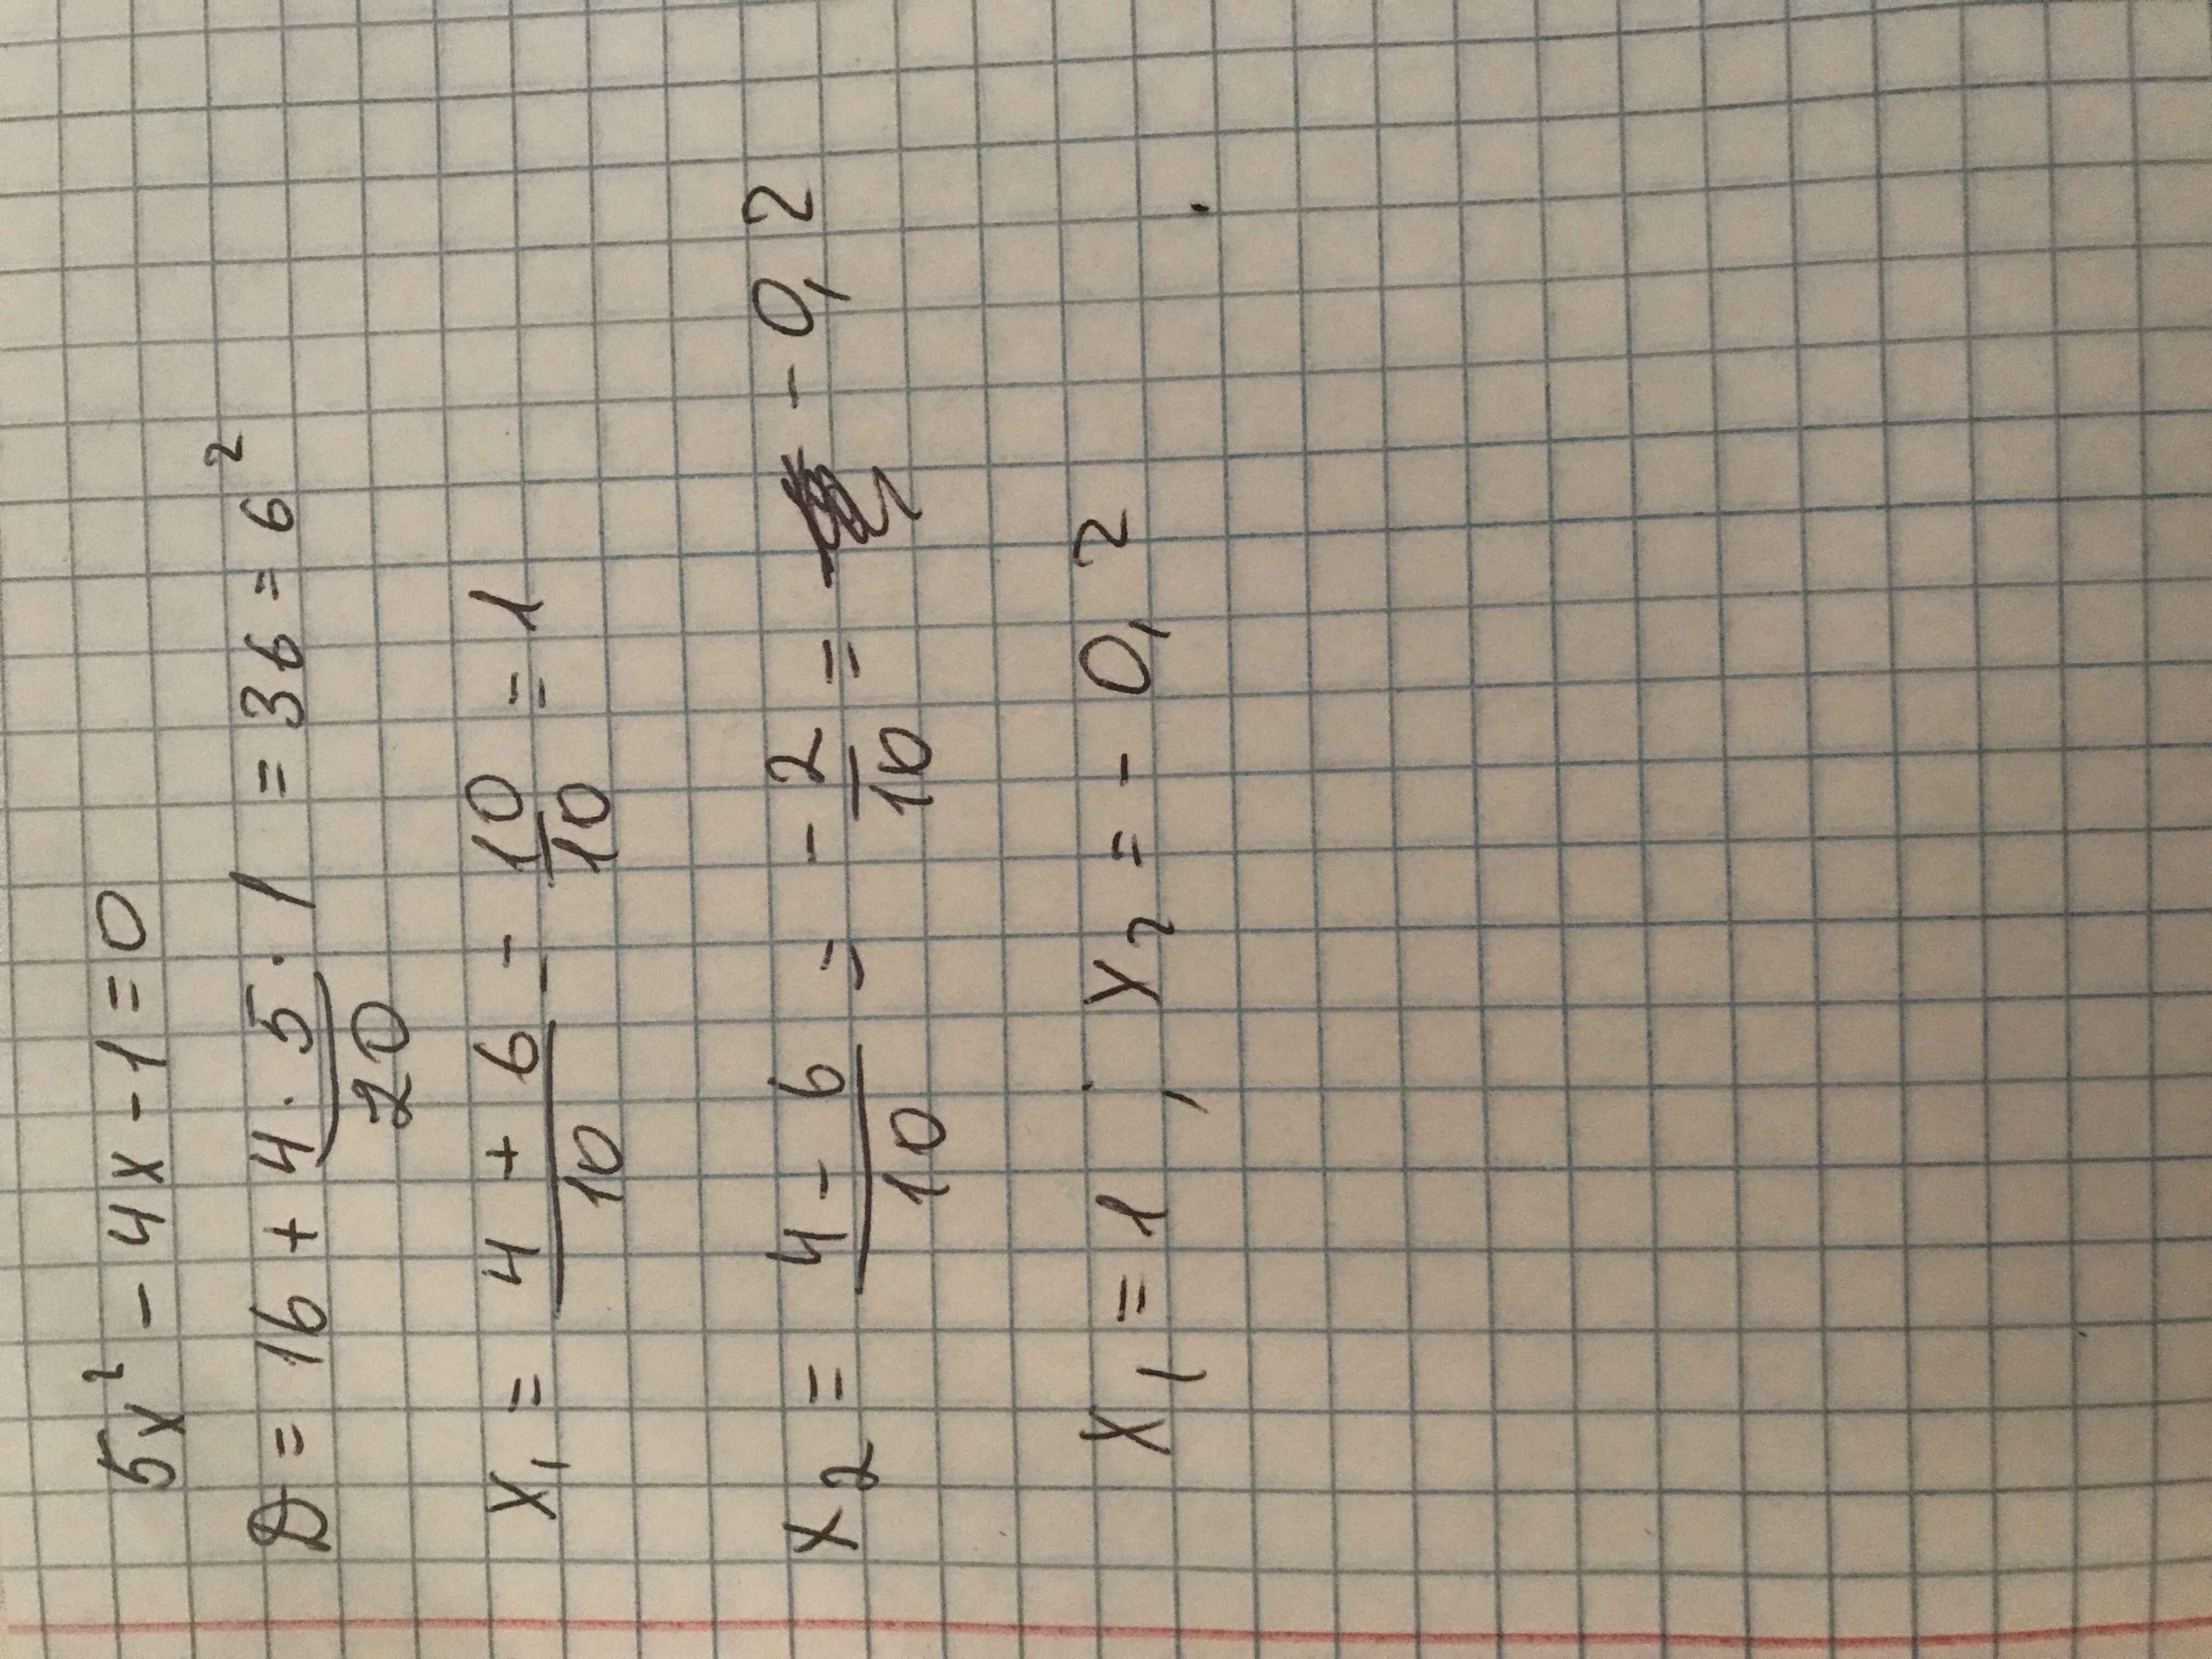 5x² - 4x - 1 = 0
D = 16 + 4 · 5 · 1 = 36 = 6²
20
x₁ = (4 + 6)/10 = 10/10 = 1
x₂ = (4 - 6)/10 = -2/10 = -0,2
x₁ = 1 ; x₂ = -0,2